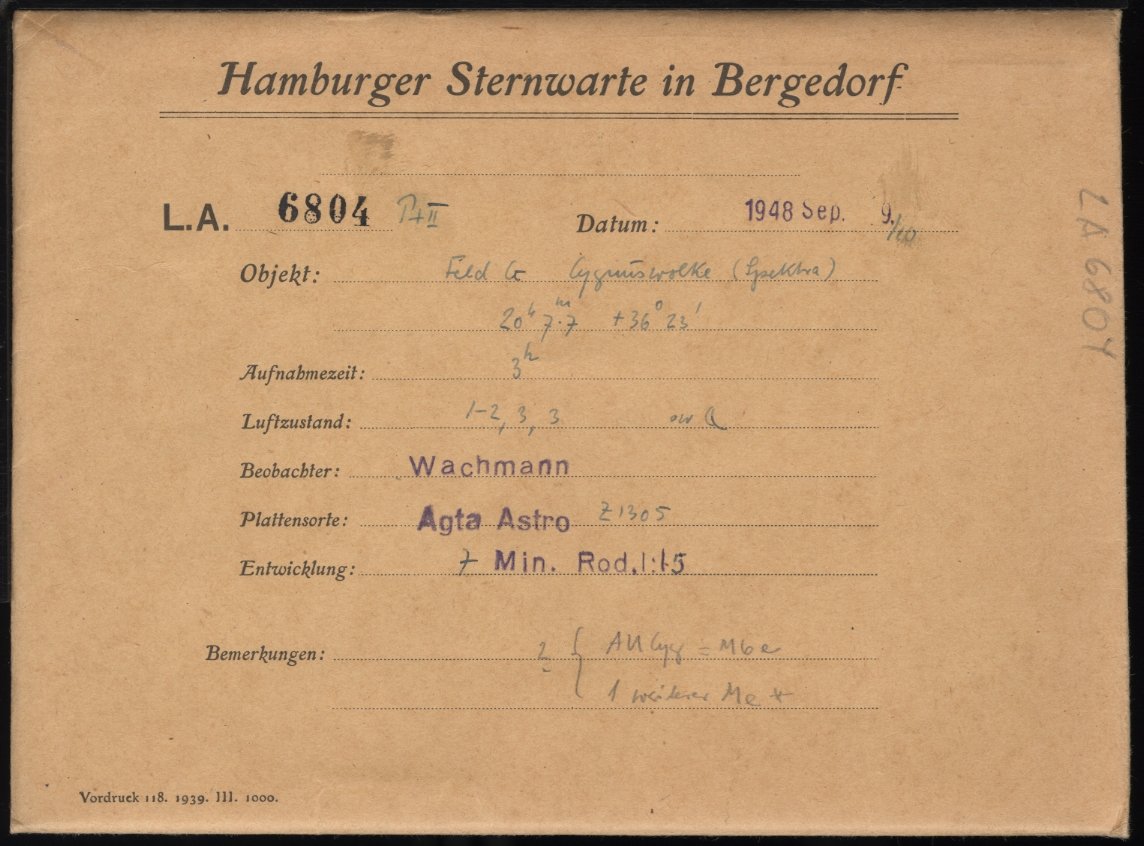 Hamburger Sternwarte in Bergedorf
L.A. 6804 P+II Datum: 1948 Sep. 9./10
Objekt: Feld G Cygnuswolke (Spektra)
20h 7m.7 +36° 23'
Aufnahmezeit: 3h
Luftzustand: 1-2, 3, 3
Beobachter: Wachmann
Plattensorte: Agfa Astro Z1305
Entwicklung: 7 Min. Rod. 1:15
Bemerkungen: 2 { AU Cyg = M6e
1 weiterer Me *
Vordruck 118. 1939. III. 1000.
LA 6804